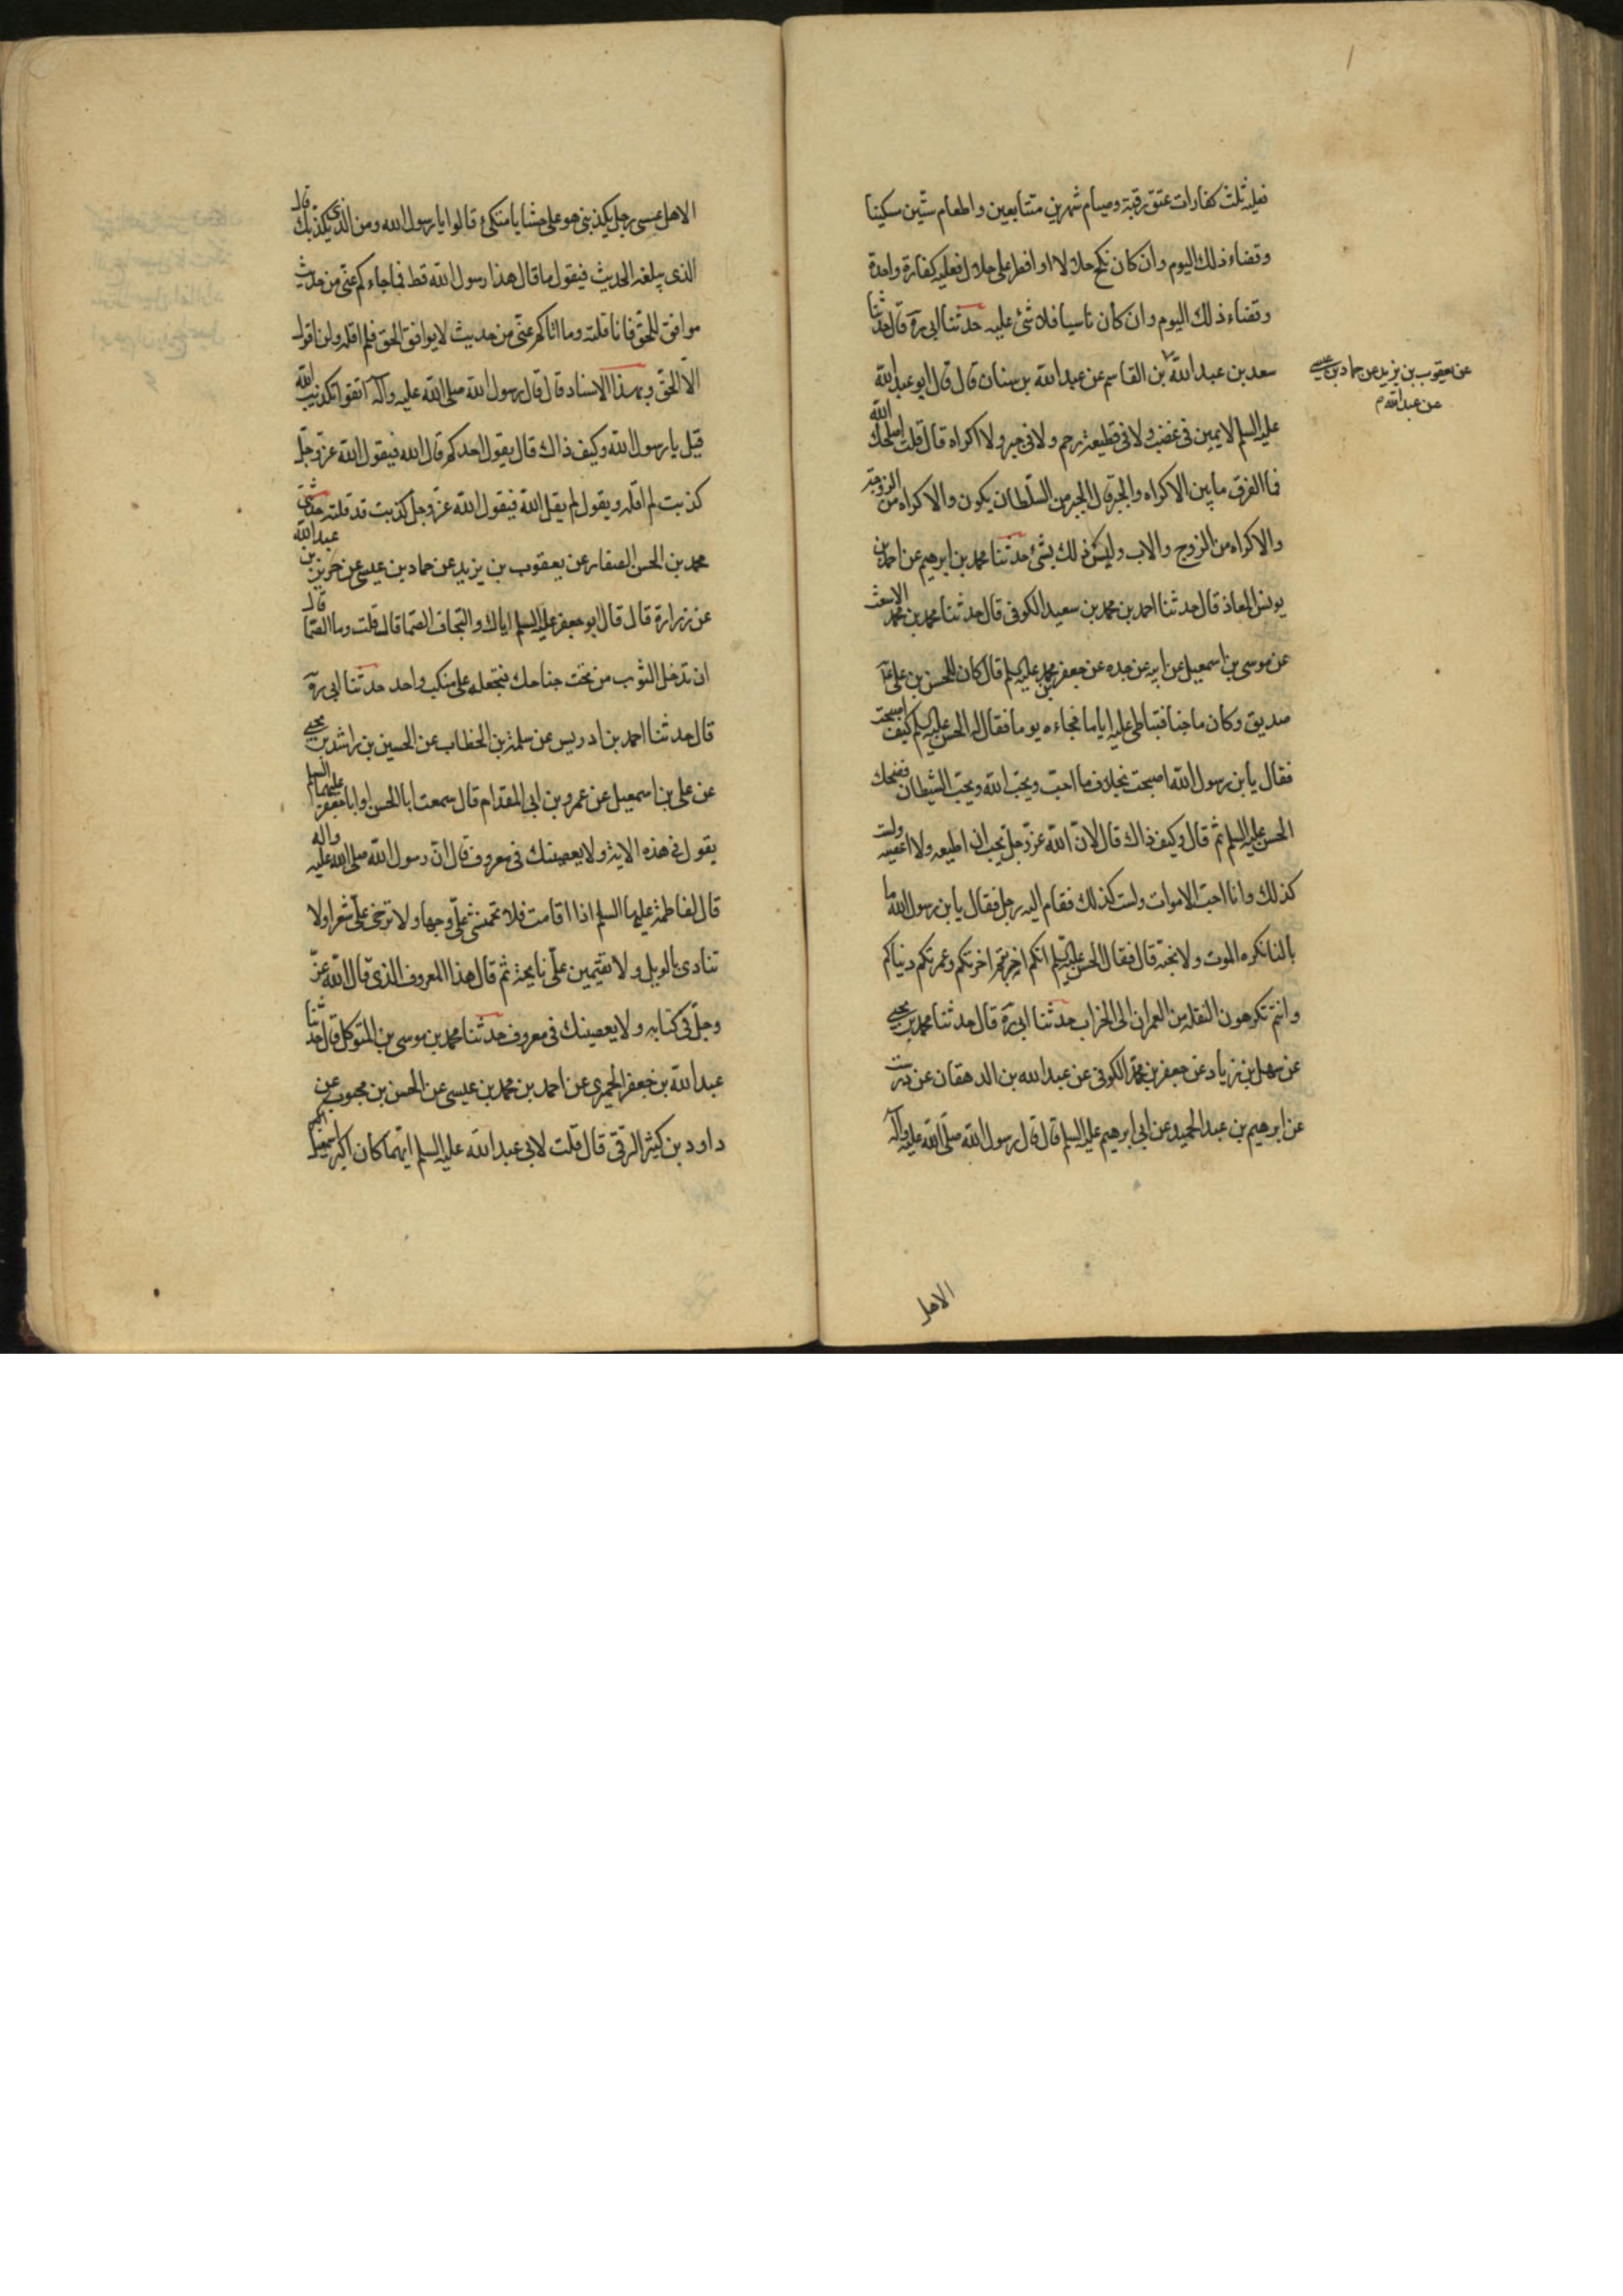 فعليه ثلث كفارات عتق رقبة وصيام شهرين متتابعين واطعام ستين مسكينا
وقضاء ذلك اليوم وان كان نكح حلالا او افطر على حلال فعليه كفارة واحدة
وقضاء ذلك اليوم وان كان ناسيا فلا شئ عليه حدثنا ابي ره قال حدثنا
سعد بن عبد الله بن القاسم عن عبد الله بن سنان قال قال ابو عبد الله
عن يعقوب بن يزيد عن حماد بن عيسى
عن عبد الله م
عليه السلم لا يمين في غضب ولا في قطيعة رحم ولا في جبر ولا اكراه قال قلت اصلحك الله
فما الفرق ما بين الاكراه والجبر قال الجبر من السلطان يكون والاكراه من الزوجة
والاكراه من الزوج والاب وليس ذلك بشئ حدثنا محمد بن ابرهيم عن احمد بن
يونس المعاذ قال حدثنا احمد بن محمد بن سعيد الكوفي قال حدثنا محمد بن محمد الاشعث
عن موسى بن اسمعيل عن ابيه عن جده عن جعفر بن محمد عليه السلم قال كان للحسن بن علي ع
صديق وكان ماجنا فتباطى عليه اياما فجاءه يوما فقال له الحسن عليه السلم كيف اصبحت
فقال يا بن رسول الله اصبحت بخلاف ما احب ويحب الله ويحب الشيطان فضحك
الحسن عليه السلم ثم قال وكيف ذاك قال لان الله عز وجل يحب ان اطيعه ولا اعصيه ولست
كذلك وانا احب الا موت ولست كذلك فقام اليه رجل فقال يا بن رسول الله ما
بالنا نكره الموت ولا نحبه قال فقال الحسن عليه السلم انكم اخربتم اخرتكم وعمرتم دنياكم
وانتم تكرهون النقلة من العمران الى الخراب حدثنا ابي ره قال حدثنا محمد بن يحيى
عن سهل بن زياد عن جعفر بن محمد الكوفي عن عبد الله بن الدهقان عن درست
عن ابرهيم بن عبد الحميد عن ابي ابرهيم عليه السلم قال قال رسول الله صلى الله عليه وآله
الا هل
الا هل عسى رجل يكذبني هو على حشايا متكئ قالوا يا رسول الله ومن الذي يكذبك قال
الذي يبلغه الحديث فيقول ما قال هذا رسول الله قط فما جاءكم عني من حديث
موافق للحق فانا قلته وما اتاكم عني من حديث لا يوافق الحق فلم اقله ولن اقول
الا الحق وبهذا الاسناد قال قال رسول الله صلى الله عليه وآله اتقوا تكذيب الله
قيل يا رسول الله وكيف ذاك قال يقول احدكم قال الله فيقول الله عز وجل
كذبت لم اقله ويقول لم يقل الله فيقول الله عز وجل كذبت قد قلته حدثني
محمد بن الحسن الصفار عن يعقوب بن يزيد عن حماد بن عيسى عن حريز بن عبد الله
عن زرارة قال قال ابو جعفر عليه السلم اياك والتحاف الصما قال قلت وما الصما قال
ان تدخل الثوب من تحت جناحك فتجعله على منكب واحد حدثنا ابي ره
قال حدثنا احمد بن ادريس عن سلمة بن الخطاب عن الحسين بن راشد بن يحيى
عن علي بن اسمعيل عن عمرو بن ابي المقدام قال سمعت ابا الحسن او ابا جعفر عليهما السلم
يقول في هذه الاية ولا يعصينك في معروف قال ان رسول الله صلى الله عليه واله
قال لفاطمة عليها السلم اذا اقامت فلا تخمشي علي وجها ولا ترخي علي شعرا ولا
تنادي بالويل ولا تقيمين علي نايحة ثم قال هذا المعروف الذي قال الله عز
وجل في كتابه ولا يعصينك في معروف حدثنا محمد بن موسى بن المتوكل قال حدثنا
عبد الله بن جعفر الحميري عن احمد بن محمد بن عيسى عن الحسن بن محبوب عن
داود بن كثير الرقي قال قلت لابي عبد الله عليه السلم ايهما كان اكبر اسمعيل